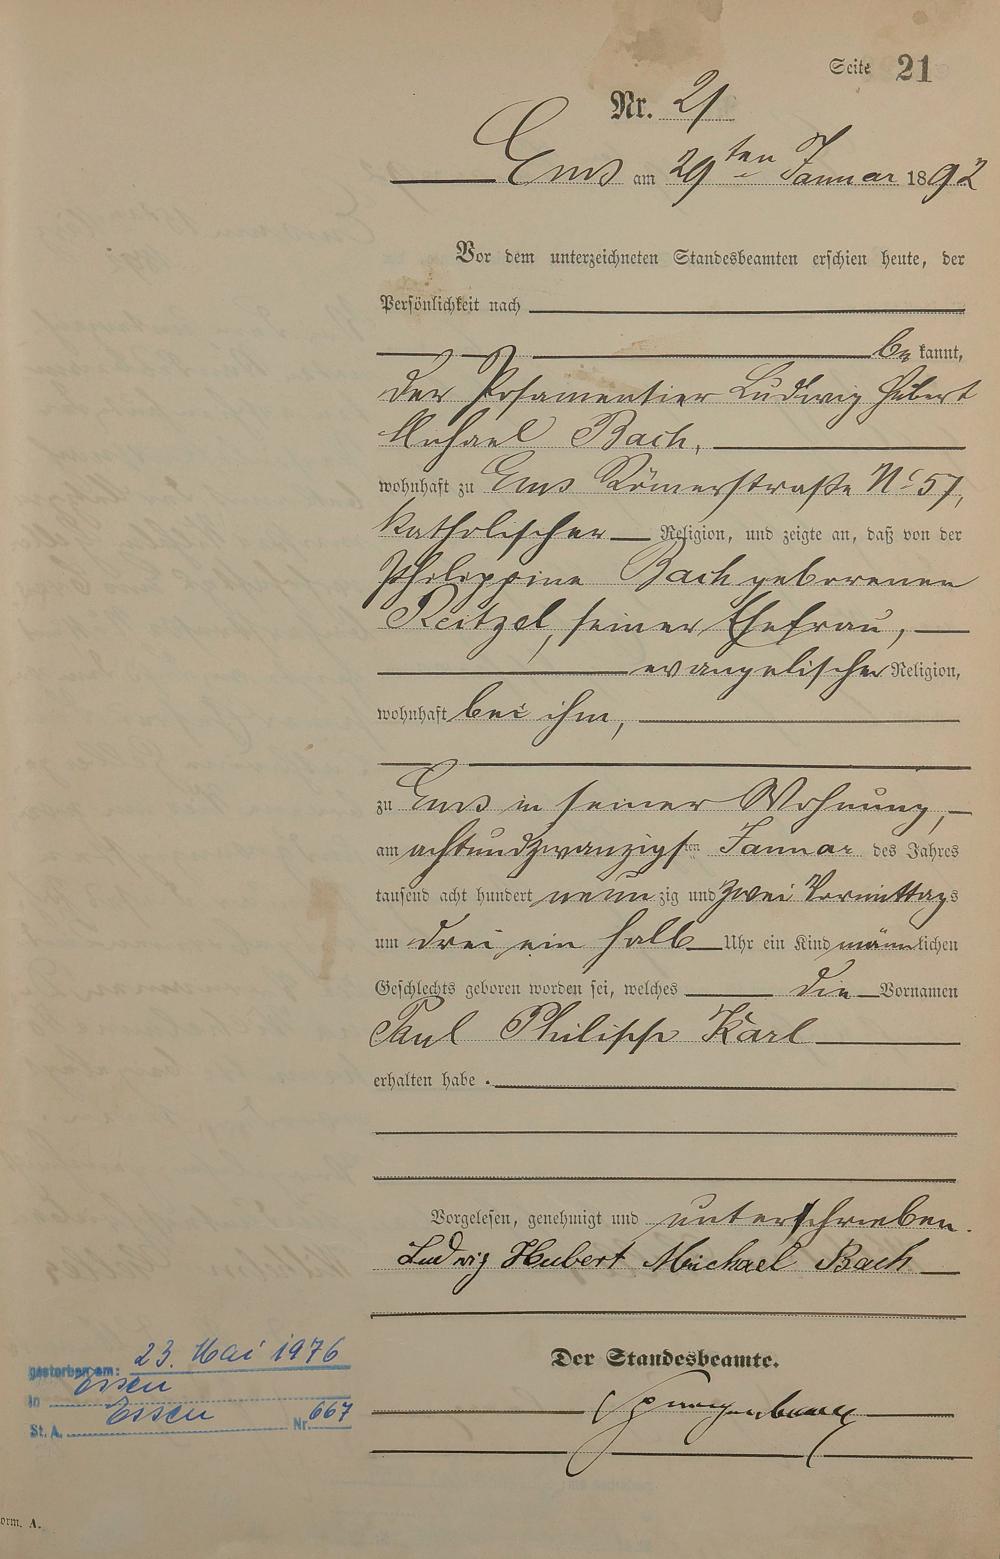 Seite 21
Nr. 21
Ems am 29ten Januar 1892
Vor dem unterzeichneten Standesbeamten erschien heute, der
Persönlichkeit nach
be kannt,
der Posamentier Ludwig Hubert
Michael Bach,
wohnhaft zu Ems Römerstraße No 57,
katholischer Religion, und zeigte an, daß von der
Philippine Bach geborenen
Reitzel, seiner Ehefrau,
evangelischer Religion,
wohnhaft bei ihm,
zu Ems in seiner Wohnung,
am achtundzwanzigsten Januar des Jahres
tausend acht hundert neunzig und zwei Vormittags
um drei ein halb Uhr ein Kind männlichen
Geschlechts geboren worden sei, welches die Vornamen
Paul Philipp Karl
erhalten habe.
Vorgelesen, genehmigt und unterschrieben.
Ludwig Hubert Michael Bach
Der Standesbeamte.
gestorben am: 23. Mai 1976
in Essen
St. A. Essen Nr. 667
orm. A.